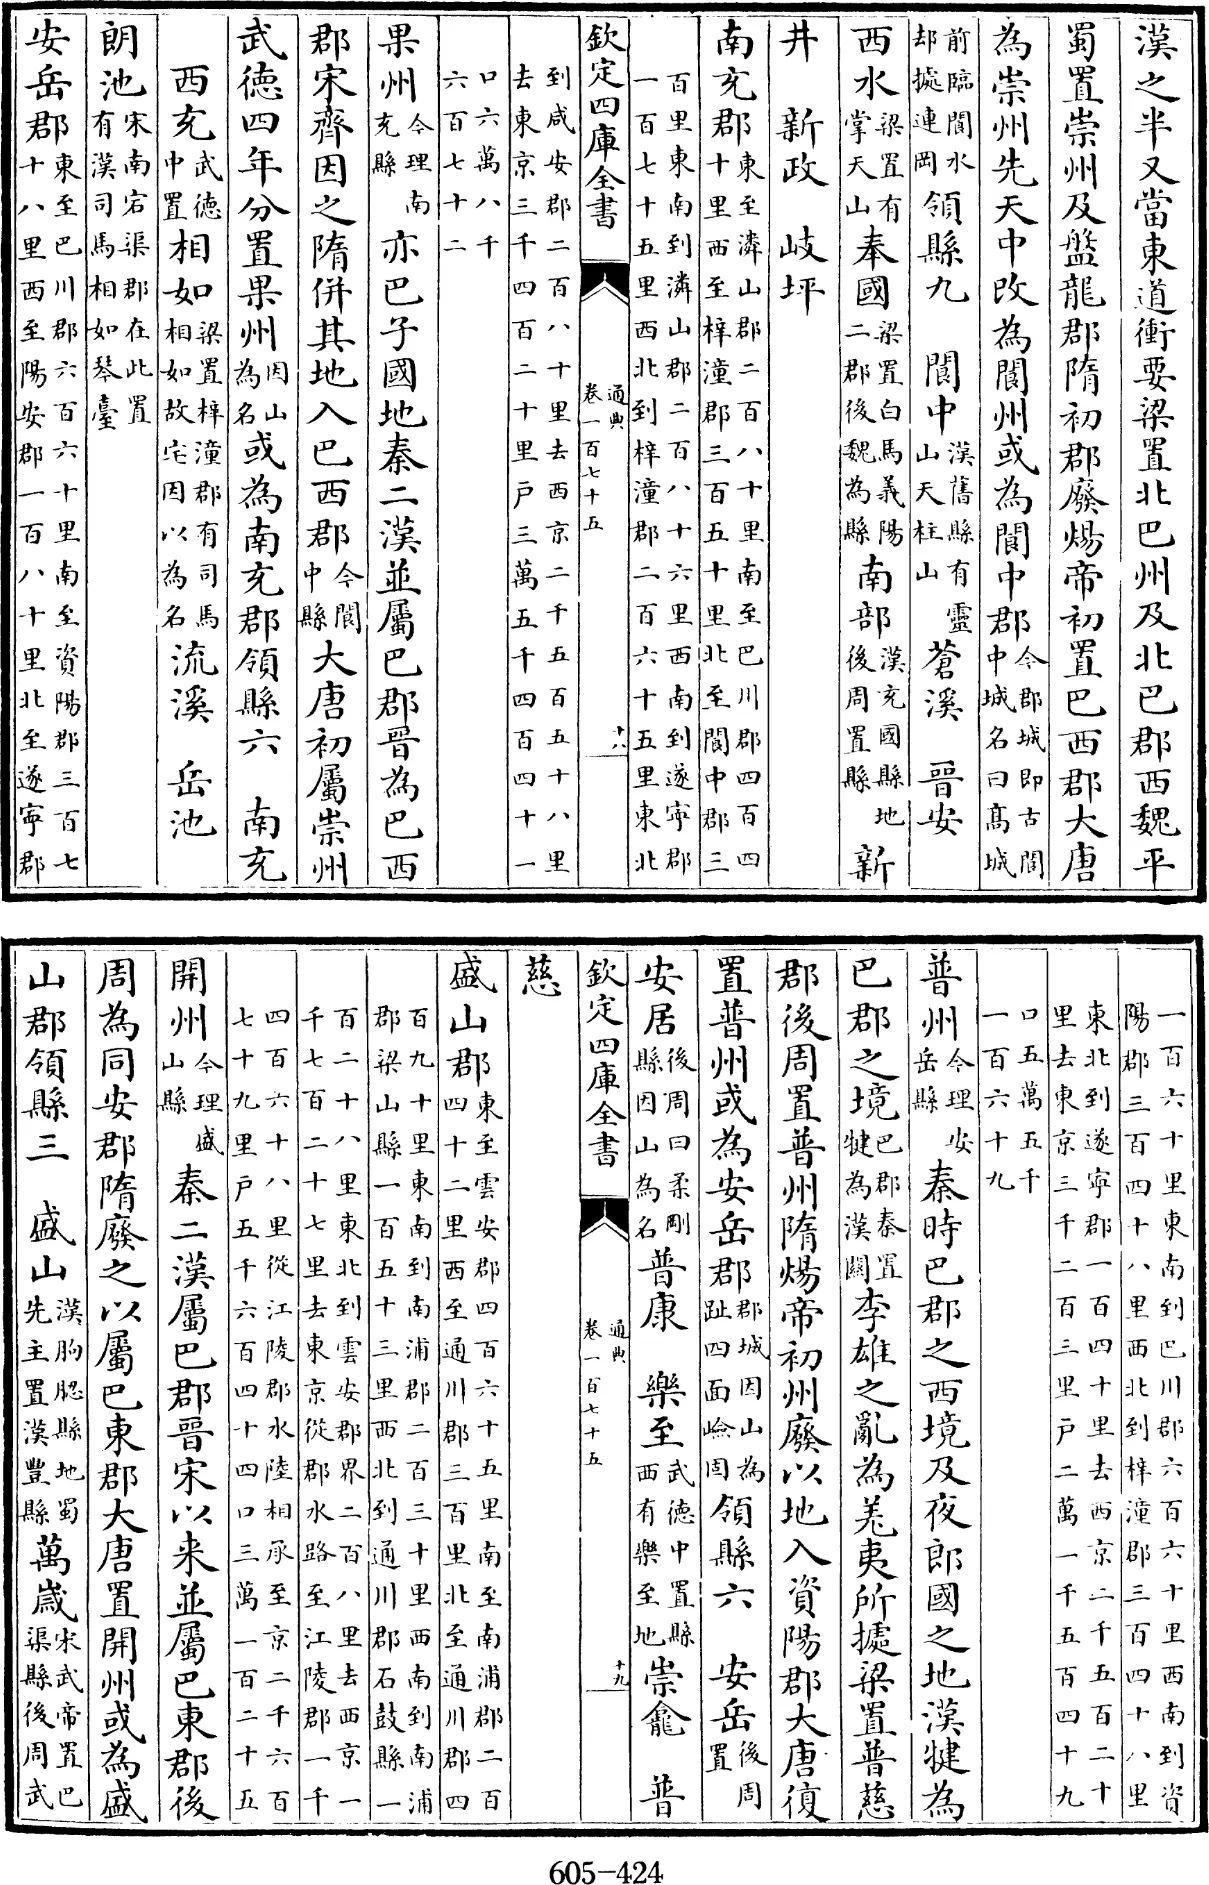 漢之半又當東道衝要梁置北巴州及北巴郡西魏平
蜀置崇州及盤龍郡隋初郡廢煬帝初置巴西郡大唐
為崇州先天中改為閬州或為閬中郡今郡城即古閬中城名曰髙城
前臨閬水却據連岡領縣九 閬中漢舊縣有靈山天柱山 蒼溪 晉安
西水梁置有掌天山奉國梁置白馬義陽二郡後魏為縣南部漢充國縣地後周置縣 新
井 新政 岐坪
南充郡東至潾山郡二百八十里南至巴川郡四百四十里西至梓潼郡三百五十里北至閬中郡三
百里東南到潾山郡二百八十六里西南到遂寧郡一百七十五里西北到梓潼郡二百六十五里東北
欽定四庫全書 通典卷一百七十五 十八
到咸安郡二百八十里去西京二千五百五十八里去東京三千四百二十里户三萬五千四百四十一
口六萬八千六百七十二
果州今理南充縣 亦巴子國地秦二漢並屬巴郡晉為巴西
郡宋齊因之隋併其地入巴西郡今閬中縣大唐初屬崇州
武德四年分置果州因山為名或為南充郡領縣六 南充
西充武德中置相如梁置梓潼郡有司馬相如故宅因以為名流溪 岳池
朗池宋南宕渠郡在此置有漢司馬相如琴臺
安岳郡東至巴川郡六百六十里南至資陽郡三百七十八里西至陽安郡一百八十里北至遂寧郡
一百六十里東南到巴川郡六百六十里西南到資陽郡三百四十八里西北到梓潼郡三百四十八里
東北到遂寧郡一百四十里去西京二千五百二十里去東京三千二百三里户二萬一千五百四十九
口五萬五千一百六十九
普州今理安岳縣 秦時巴郡之西境及夜郎國之地漢犍為
巴郡之境巴郡秦置犍為漢闢李雄之亂為羌夷所據梁置普慈
郡後周置普州隋煬帝初州廢以地入資陽郡大唐復
置普州或為安岳郡郡城因山為趾四面嶮固領縣六 安岳後周置
安居後周曰柔剛縣因山為名普康 樂至武德中置縣西有樂至地崇龕 普
欽定四庫全書 通典卷一百七十五 十九
慈
盛山郡東至雲安郡四百六十五里南至南浦郡二百四十二里西至通川郡三百里北至通川郡四
百九十里東南到南浦郡二百三十里西南到南浦郡梁山縣一百五十三里西北到通川郡石鼓縣一
百二十八里東北到雲安郡界二百八里去西京一千七百二十七里去東京從郡水路至江陵郡一千
四百六十八里從江陵郡水陸相承至京二千六百七十九里户五千六百四十四口三萬一百二十五
開州今理盛山縣 秦二漢屬巴郡晉宋以来並屬巴東郡後
周為同安郡隋廢之以屬巴東郡大唐置開州或為盛
山郡領縣三 盛山漢朐䏰縣地蜀先主置漢豐縣萬歲宋武帝置巴渠縣後周武
605-424